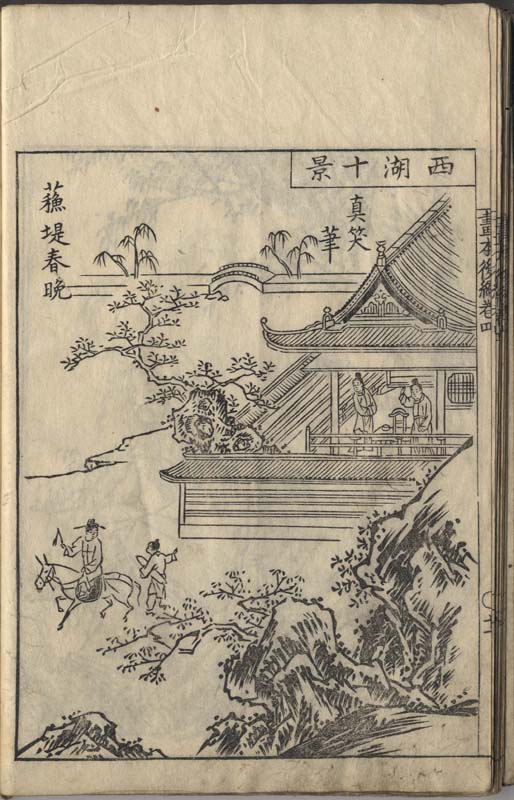 西湖十景
真笑
筆
蘓堤春晩
畫本後編卷四